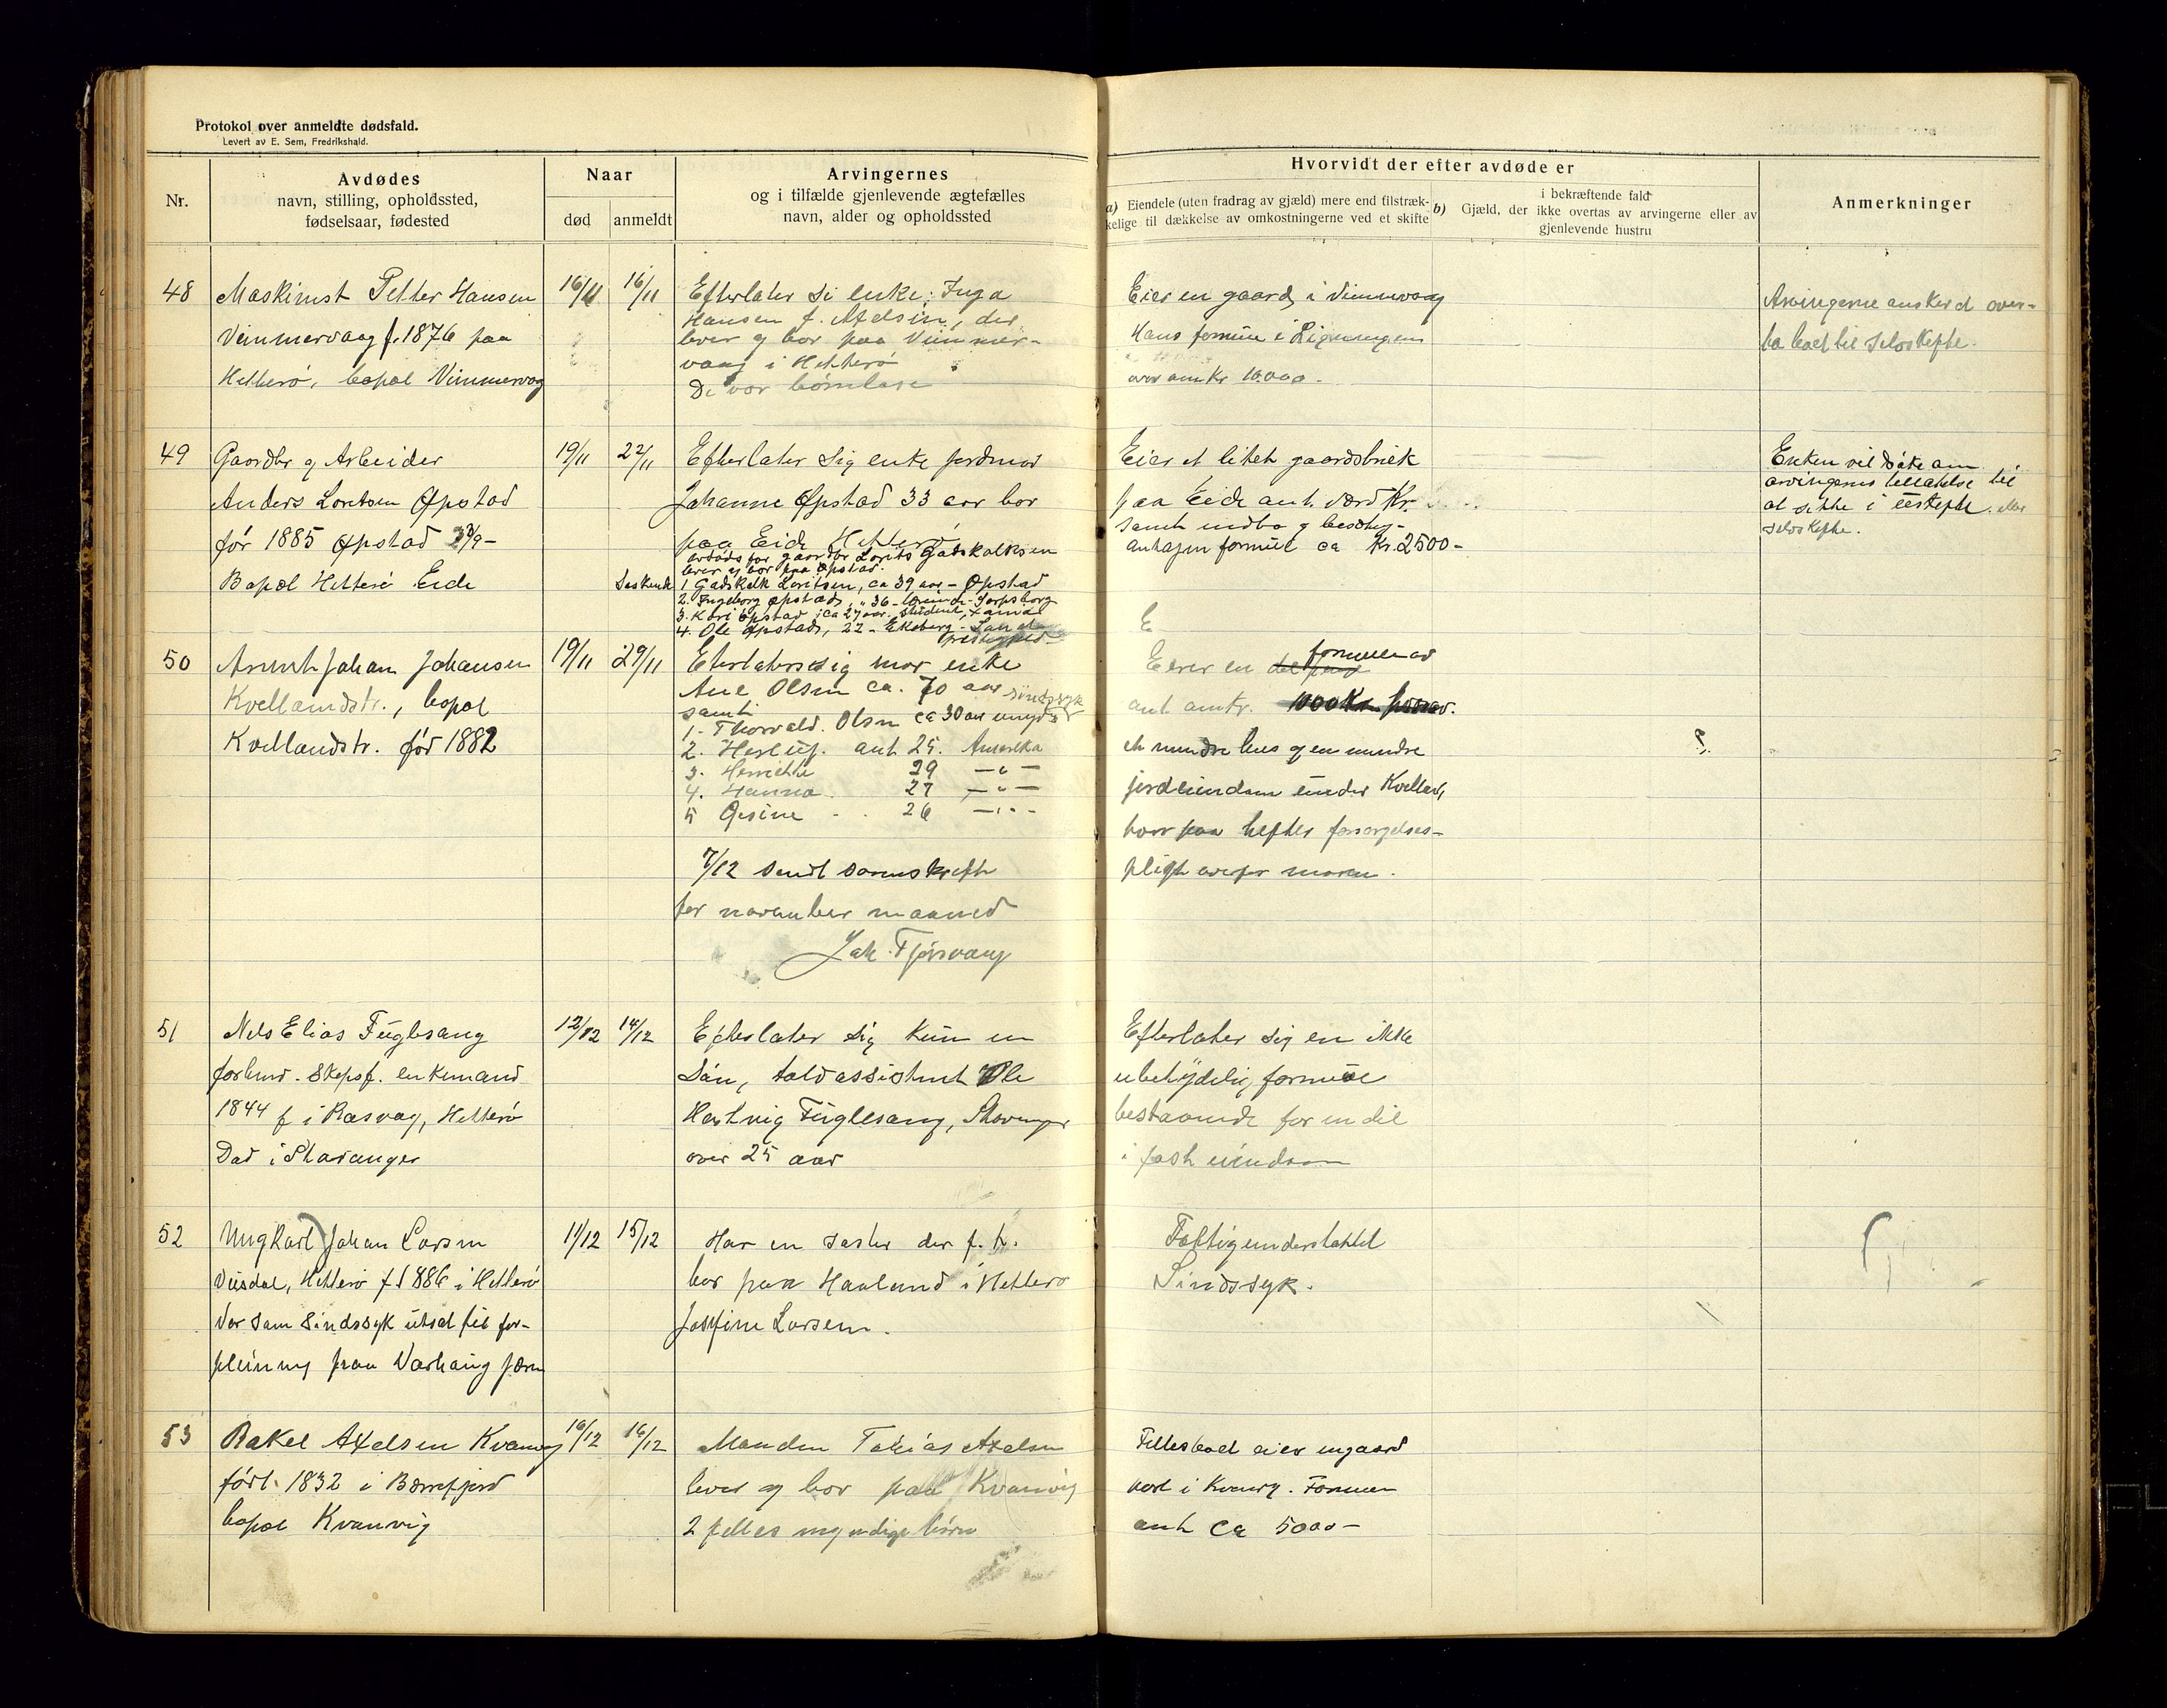 Protokol over anmeldte dødsfald.
Levert av E. Sem, Fredrikshald.
Nr.
Avdødes
navn, stilling, opholdssted,
fødselsaar, fødested
Naar
død
anmeldt
Arvingernes
og i tilfælde gjenlevende ægtefælles
navn, alder og opholdssted
Hvorvidt der efter avdøde er
a) Eiendele (uten fradrag av gjæld) mere end tilstræk-
kelige til dækkelse av omkostningerne ved et skifte
b)
i bekræftende fald
Gjæld, der ikke overtas av arvingerne eller av
gjenlevende hustru
Anmerkninger
48
Maskinist Petter Hansen
Vimmervaag f. 1876 paa
Hitterø, bopæl Vimmervag
16/11
16/11
Efterlater si enke: Inga
Hansen f. Axelsen, der
lever og bor paa Vimmer-
vaag i Hitterø
De var barnløse
Eier en gaard i Vimmervaag
Hans formue i Ligningen
over om Kr 10.000.
Arvingerne ønsker at over-
ta boet til selvskifte.
49
Gaardbr og Arbeider
Anders Loritsen Øpstad
før 1885 Øpstad
Bopæl Hitterø Eide
19/11
22/11
Søskende
Efterlater sig enke jordmor
Johanne Øpstad 33 aar bor
paa Eide Hitterø
avdøds far gaardbr Lorits Gadskalksen
lever og bor paa Øpstad.
1. Gadskalk Loritsen, ca 39 aar - Øpstad
2. Ingeborg Øpstad, " 36 - Sarpsborg
3. Kari Øpstad ca 27 aar, student,
4. Ole Øpstad, 22 - Ekeberg -
Eier et litet gaardsbruk
paa Eide ant. værd Kr.
samt indbo og besætn-
antagen formue ca Kr. 2500-
Enken vil søke om
arvingernes tillatelse til
at sitte i uskifte eller
selvskifte.
50
Arent Johan Johansen
Kvellandstr., bopæl
Kvellandstr. før 1882
19/11
29/11
Eterlater sig mor enke
Ane Olsen ca. 70 aar sindssyk
samt
1. Thorvald. Olsen ca 30 aar
2. Hertig. ant 25. Amerika
3. Henriette 29 — " —
4. Hanna 27 — " —
5 Gesine 26 — " —
7/12 sendt avskrift
for november maaned
Jak. Tjørsvaag
E
Eierer en formue av
ant omtr. 1000 Kr.
et mindre hus og en mindre
jordeiendom under Kvelland,
hvor paa heftes forsørgelses-
pligt overfor moren.
?
51
Nils Elias Fuglesang
forhend. Skipsf. enkemand
1844 f i Rasvag, Hitterø
Død i Stavanger
12/12
14/12
Efterlater sig kun en
søn, toldassistent Ole
Hartvig Fuglesang, Stavanger
over 25 aar
Efterlater sig en ikke
ubetydelig formue
bestaaende for en del
i fast eiendom
52
Ungkarl Johan Larsen
Veisdal, Hitterø f 1886 i Hitterø
Var som sindssyk utsat til for-
pleining paa Varhaug Jæren
11/12
15/12
Har en søster der f. t.
bor paa Haaland i Hitterø
Josefine Larsen.
Fattigunderstøttet
Sindssyk.
53
Rakel Axelsen Kvanvig
født 1832 i Bærefjord
bopæl Kvanvig
16/12
16/12
Manden Tobias Axelsen
lever og bor paa Kvanvig
2 felles myndige børn
Fellesboet eier en gaard
part i Kvanvig. Formuen
ant ca 5000-